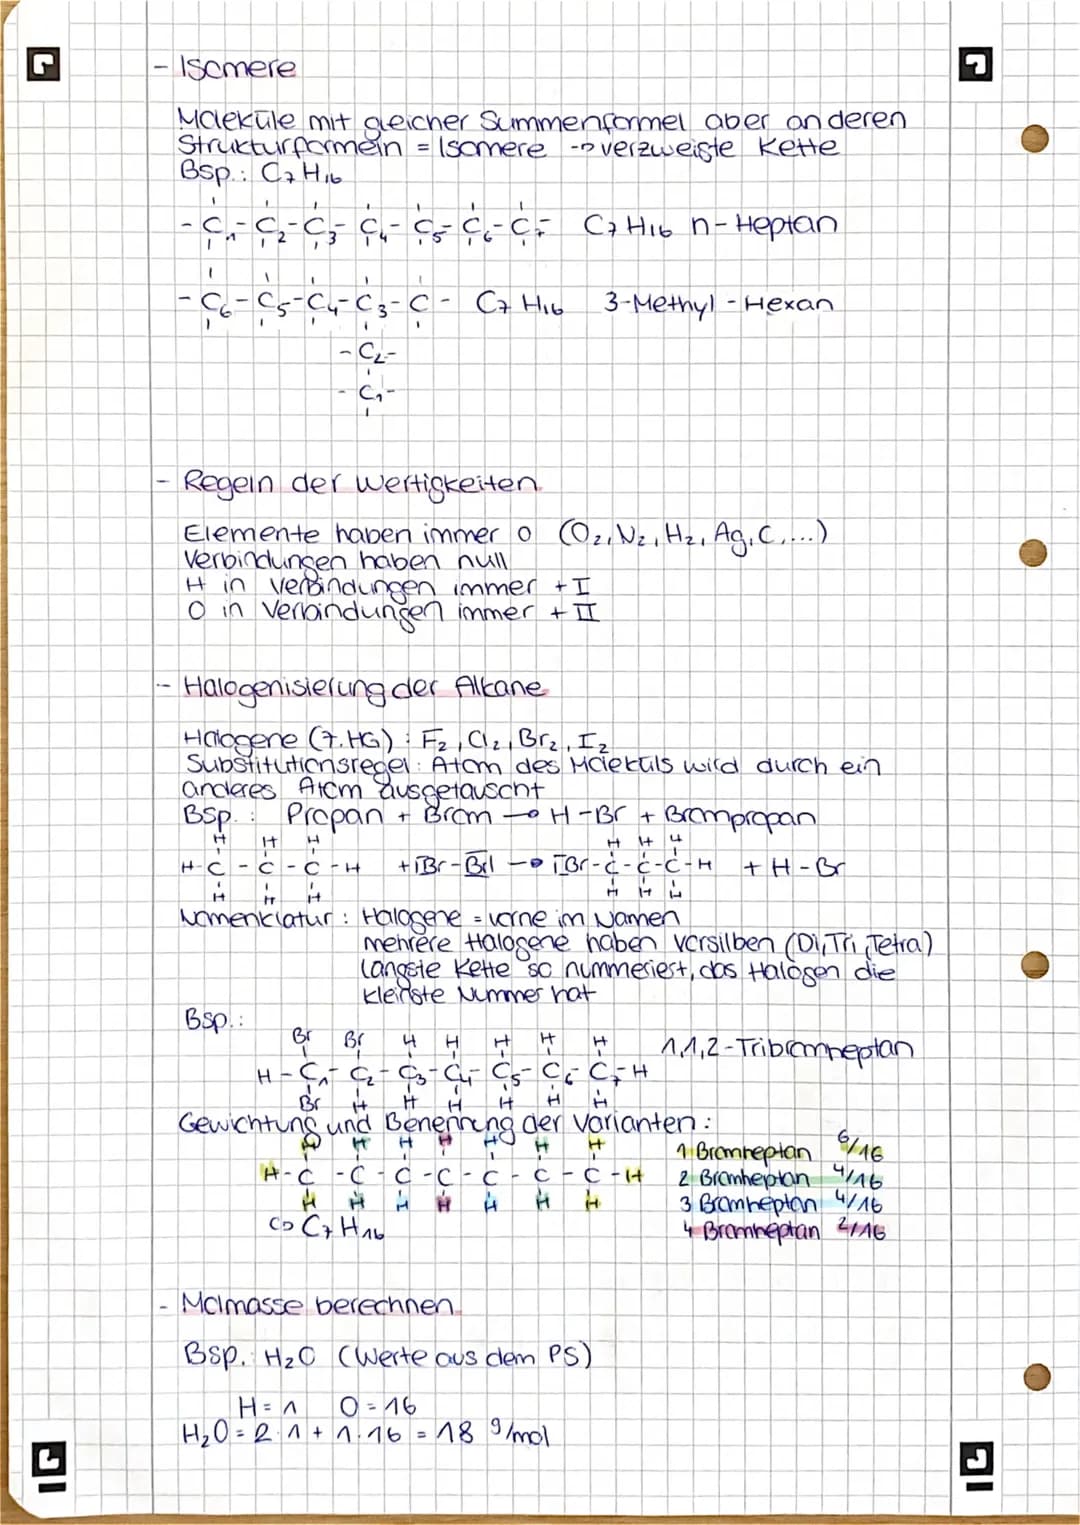 - Isomere
Moleküle mit gleicher Summenformel aber anderen
Strukturformeln = Isomere -> verzweigte Kette
Bsp.: C₇H₁₆
-C₁-C₂-C₃-C₄-C₅-C₆-C₇- C₇H₁₆ n-Heptan
-C₆-C₅-C₄-C₃-C- C₇H₁₆ 3-Methyl-Hexan
-C₂-
-C₁-
- Regeln der Wertigkeiten
Elemente haben immer 0 (O₂, N₂, H₂, Ag, C, ...)
Verbindungen haben null
H in Verbindungen immer +I
O in Verbindungen immer +II
- Halogenisierung der Alkane
Halogene (7.HG): F₂, Cl₂, Br₂, I₂
Substitutionsregel: Atom des Moleküls wird durch ein
anderes Atom ausgetauscht
Bsp.: Propan + Brom → H-Br + Brompropan
H H H H H H
H-C-C-C-H + |Br-Br| → |Br-C-C-C-H + H-Br
H H H H H H
Nomenklatur: Halogene = vorne im Namen
mehrere Halogene haben Vorsilben (Di, Tri, Tetra)
längste Kette so nummeriest, das Halogen die
kleinste Nummer hat
Bsp.:
Br Br H H H H H 1,1,2-Tribromheptan
H-C₁-C₂-C₃-C₄-C₅-C₆-C₇-H
Br H H H H H H
Gewichtung und Benennung der Varianten:
H H H H H H H 1 Bromheptan 6/16
H-C-C-C-C-C-C-C-H 2 Bromheptan 4/16
H H H H H H H 3 Bromheptan 4/16
↪ C₇H₁₆ 4 Bromheptan 2/16
- Molmasse berechnen
Bsp.: H₂O (Werte aus dem PS)
H = 1 O = 16
H₂O = 2·1 + 1·16 = 18 g/mol